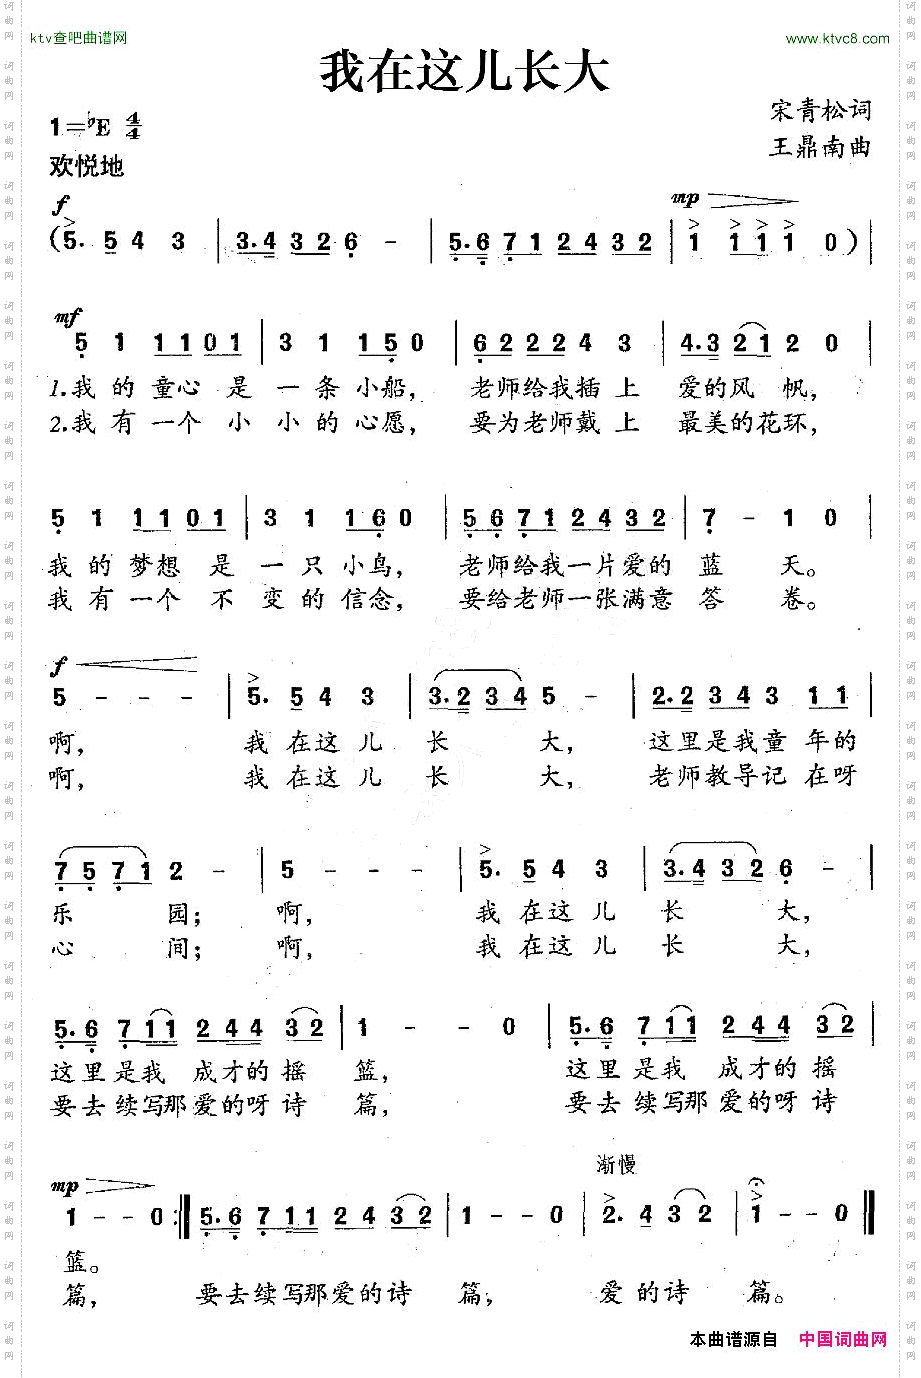 ktv查吧曲谱网
www.ktvc8.com
我在这儿长大
宋青松词
1=♭E 4/4
王鼎南曲
欢悦地
f mp
(5. 5 4 3 | 3.4 3 2 6 - | 5.6 7 1 2 4 3 2 | 1 1 1 1 0)|
mf
5 1 1 1 0 1 | 3 1 1 5 0 | 6 2 2 2 4 3 | 4.3 2 1 2 0 |
1.我 的 童心 是 一 条 小船， 老师给我插 上 爱的风 帆，
2.我 有 一个 小 小 的 心愿， 要为老师戴 上 最美的花环，
5 1 1 1 0 1 | 3 1 1 6 0 | 5 6 7 1 2 4 3 2 | 7 - 1 0 |
我 的 梦想 是 一 只 小鸟， 老师给我一片爱的 蓝 天。
我 有 一个 不 变 的 信念， 要给老师一张满意 答 卷。
f
5 - - - | 5. 5 4 3 | 3.2 3 4 5 - | 2.2 3 4 3 1 1 |
啊， 我 在这 儿 长 大， 这里是我童 年的
啊， 我 在这 儿 长 大， 老师教导记 在呀
7 5 7 1 2 - | 5 - - - | 5. 5 4 3 | 3.4 3 2 6 - |
乐 园； 啊， 我 在这 儿 长 大，
心 间； 啊， 我 在这 儿 长 大，
5.6 7 1 1 2 4 4 3 2 | 1 - - 0 | 5.6 7 1 1 2 4 4 3 2 |
这里是我 成才的摇 篮， 这里是我 成才的摇
要去续写那爱的呀诗 篇， 要去续写那爱的呀诗
mp 渐慢
1 - - 0 :‖ 5.6 7 1 1 2 4 4 3 2 | 1 - - 0 | 2. 4 3 2 | 1 - - 0 ‖
篮。
篇， 要去续写那爱的诗 篇， 爱 的诗 篇。
本曲谱源自 中国词曲网